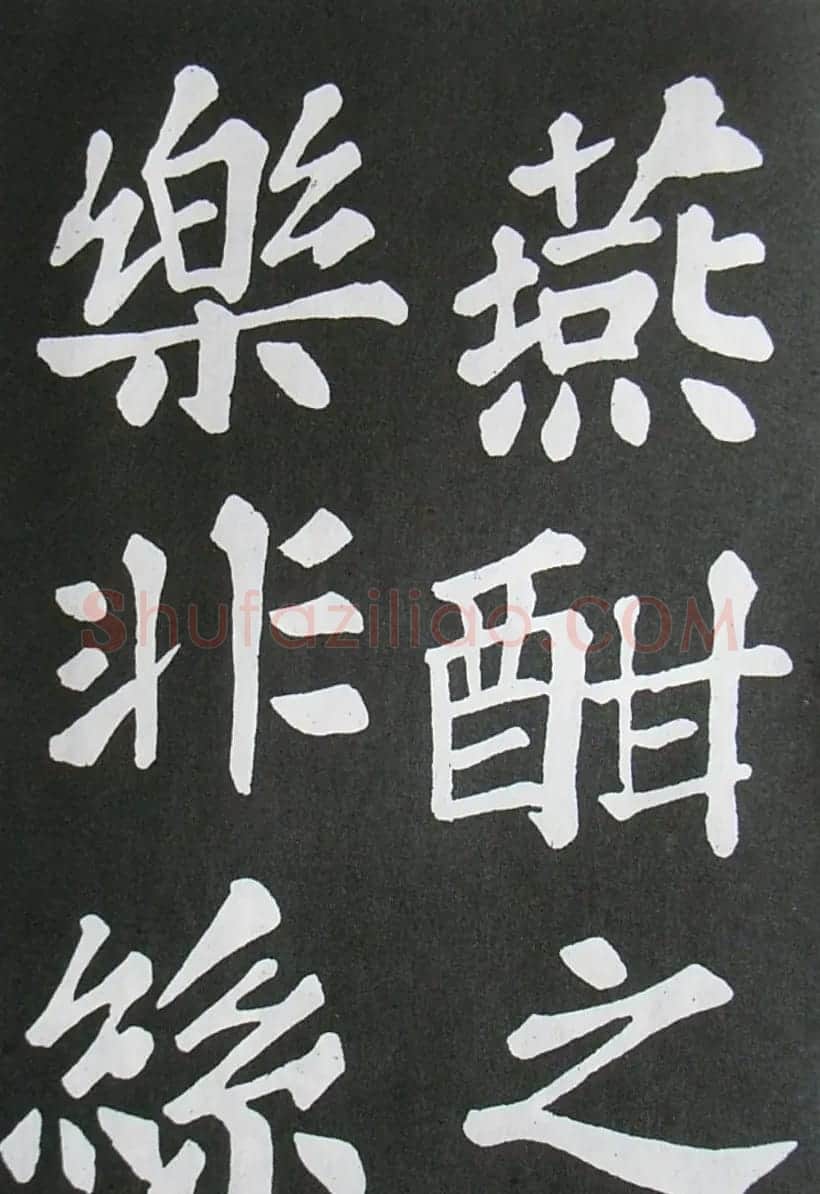 燕酣之
樂非絲
Shufaziliao.COM